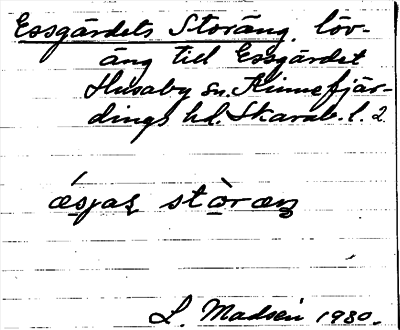 Essgärdets Storäng, löv-
äng till Essgärdet
Husaby sn. Kinnefjär-
dings hd. Skarab. l. 2
L. Madsen 1930.